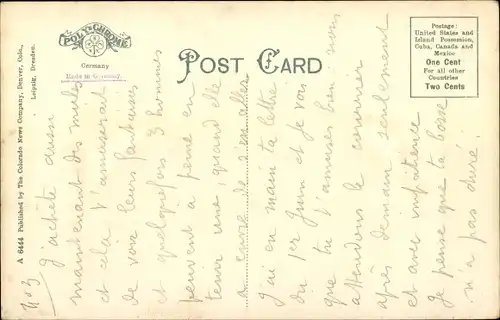 POLYCHROME
Germany
Made in Germany.
POST CARD
Postage:
United States and
Island Possession,
Cuba, Canada and
Mexico
One Cent
For all other
Countries
Two Cents
A 6444 Published by The Colorado News Company, Denver, Colo.,
Leipzig, Dresden.
No 3
J'achète aussi
maintenant des mules
et cela t'amuserait
de voir leurs fantaisies
et quelquefois 3 hommes
peuvent à peine en
tenir une, quand elle
a envie de s'en aller
J'ai en main ta lettre
du 1er Juin et je vois
que tu t'amuses bien; nous
attendons le courrier
après demain seulement
et avec impatience
Je pense que ta
n'a pas duré.